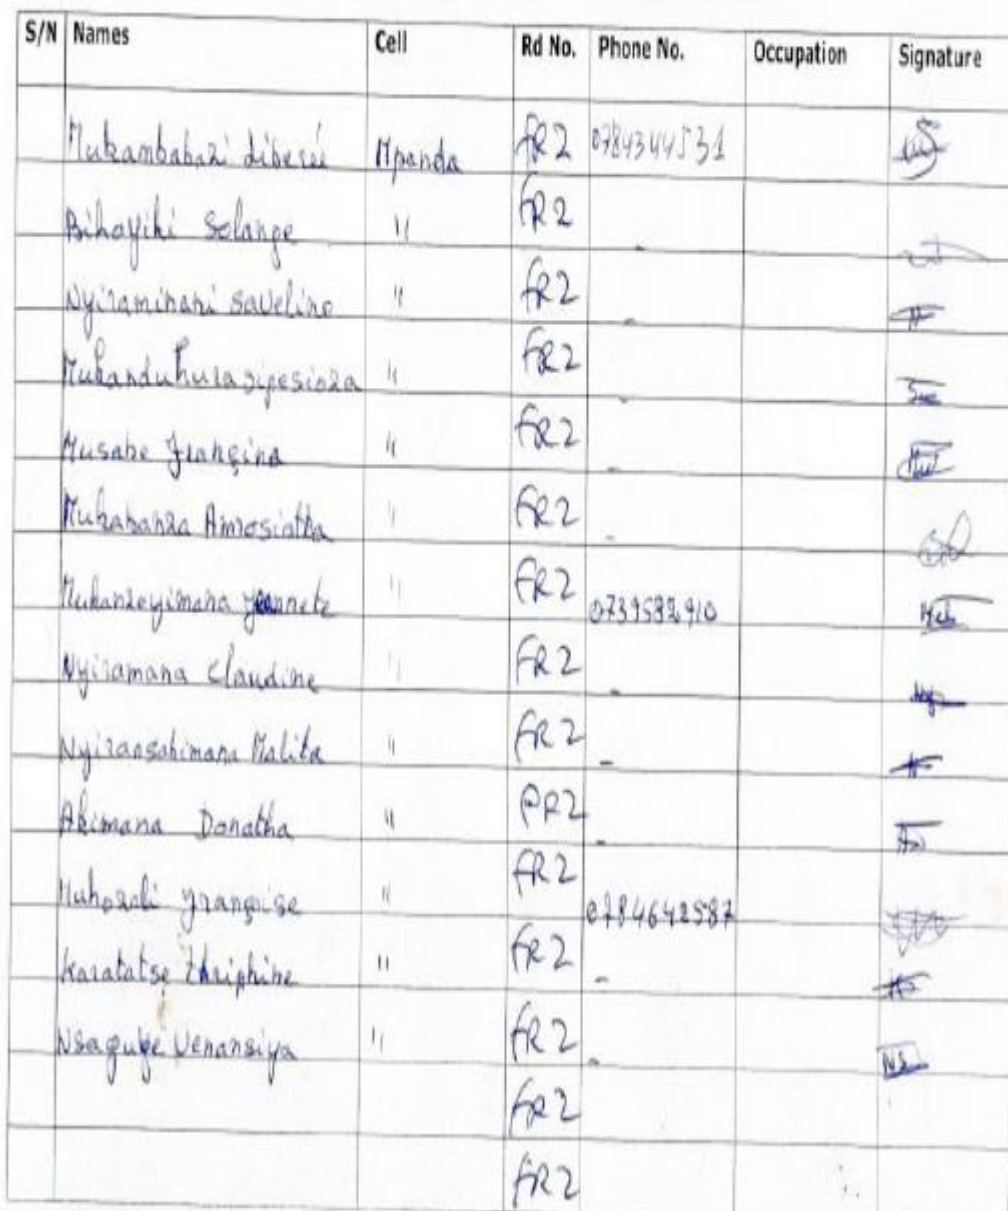 S/N Names Cell Rd No. Phone No. Occupation Signature
Mukambabazi Mpanda FR2 0784344531
Bihoyiki Solange " FR2 -
Nyiraminani Saveline " FR2 -
" FR2 -
Musabe Frangina " FR2 -
Mukabanza Amrosiatha " FR2 -
Mukanzeyimana Jeannete " FR2
Nyiramana Claudine " FR2 -
Nyiransabimana Malita " FR2 -
Akimana Donatha " PR2 -
Muhozali Françoise " FR2 0784642587
Karatatse " FR2 -
Venansiya " FR2 - NS
FR2
FR2